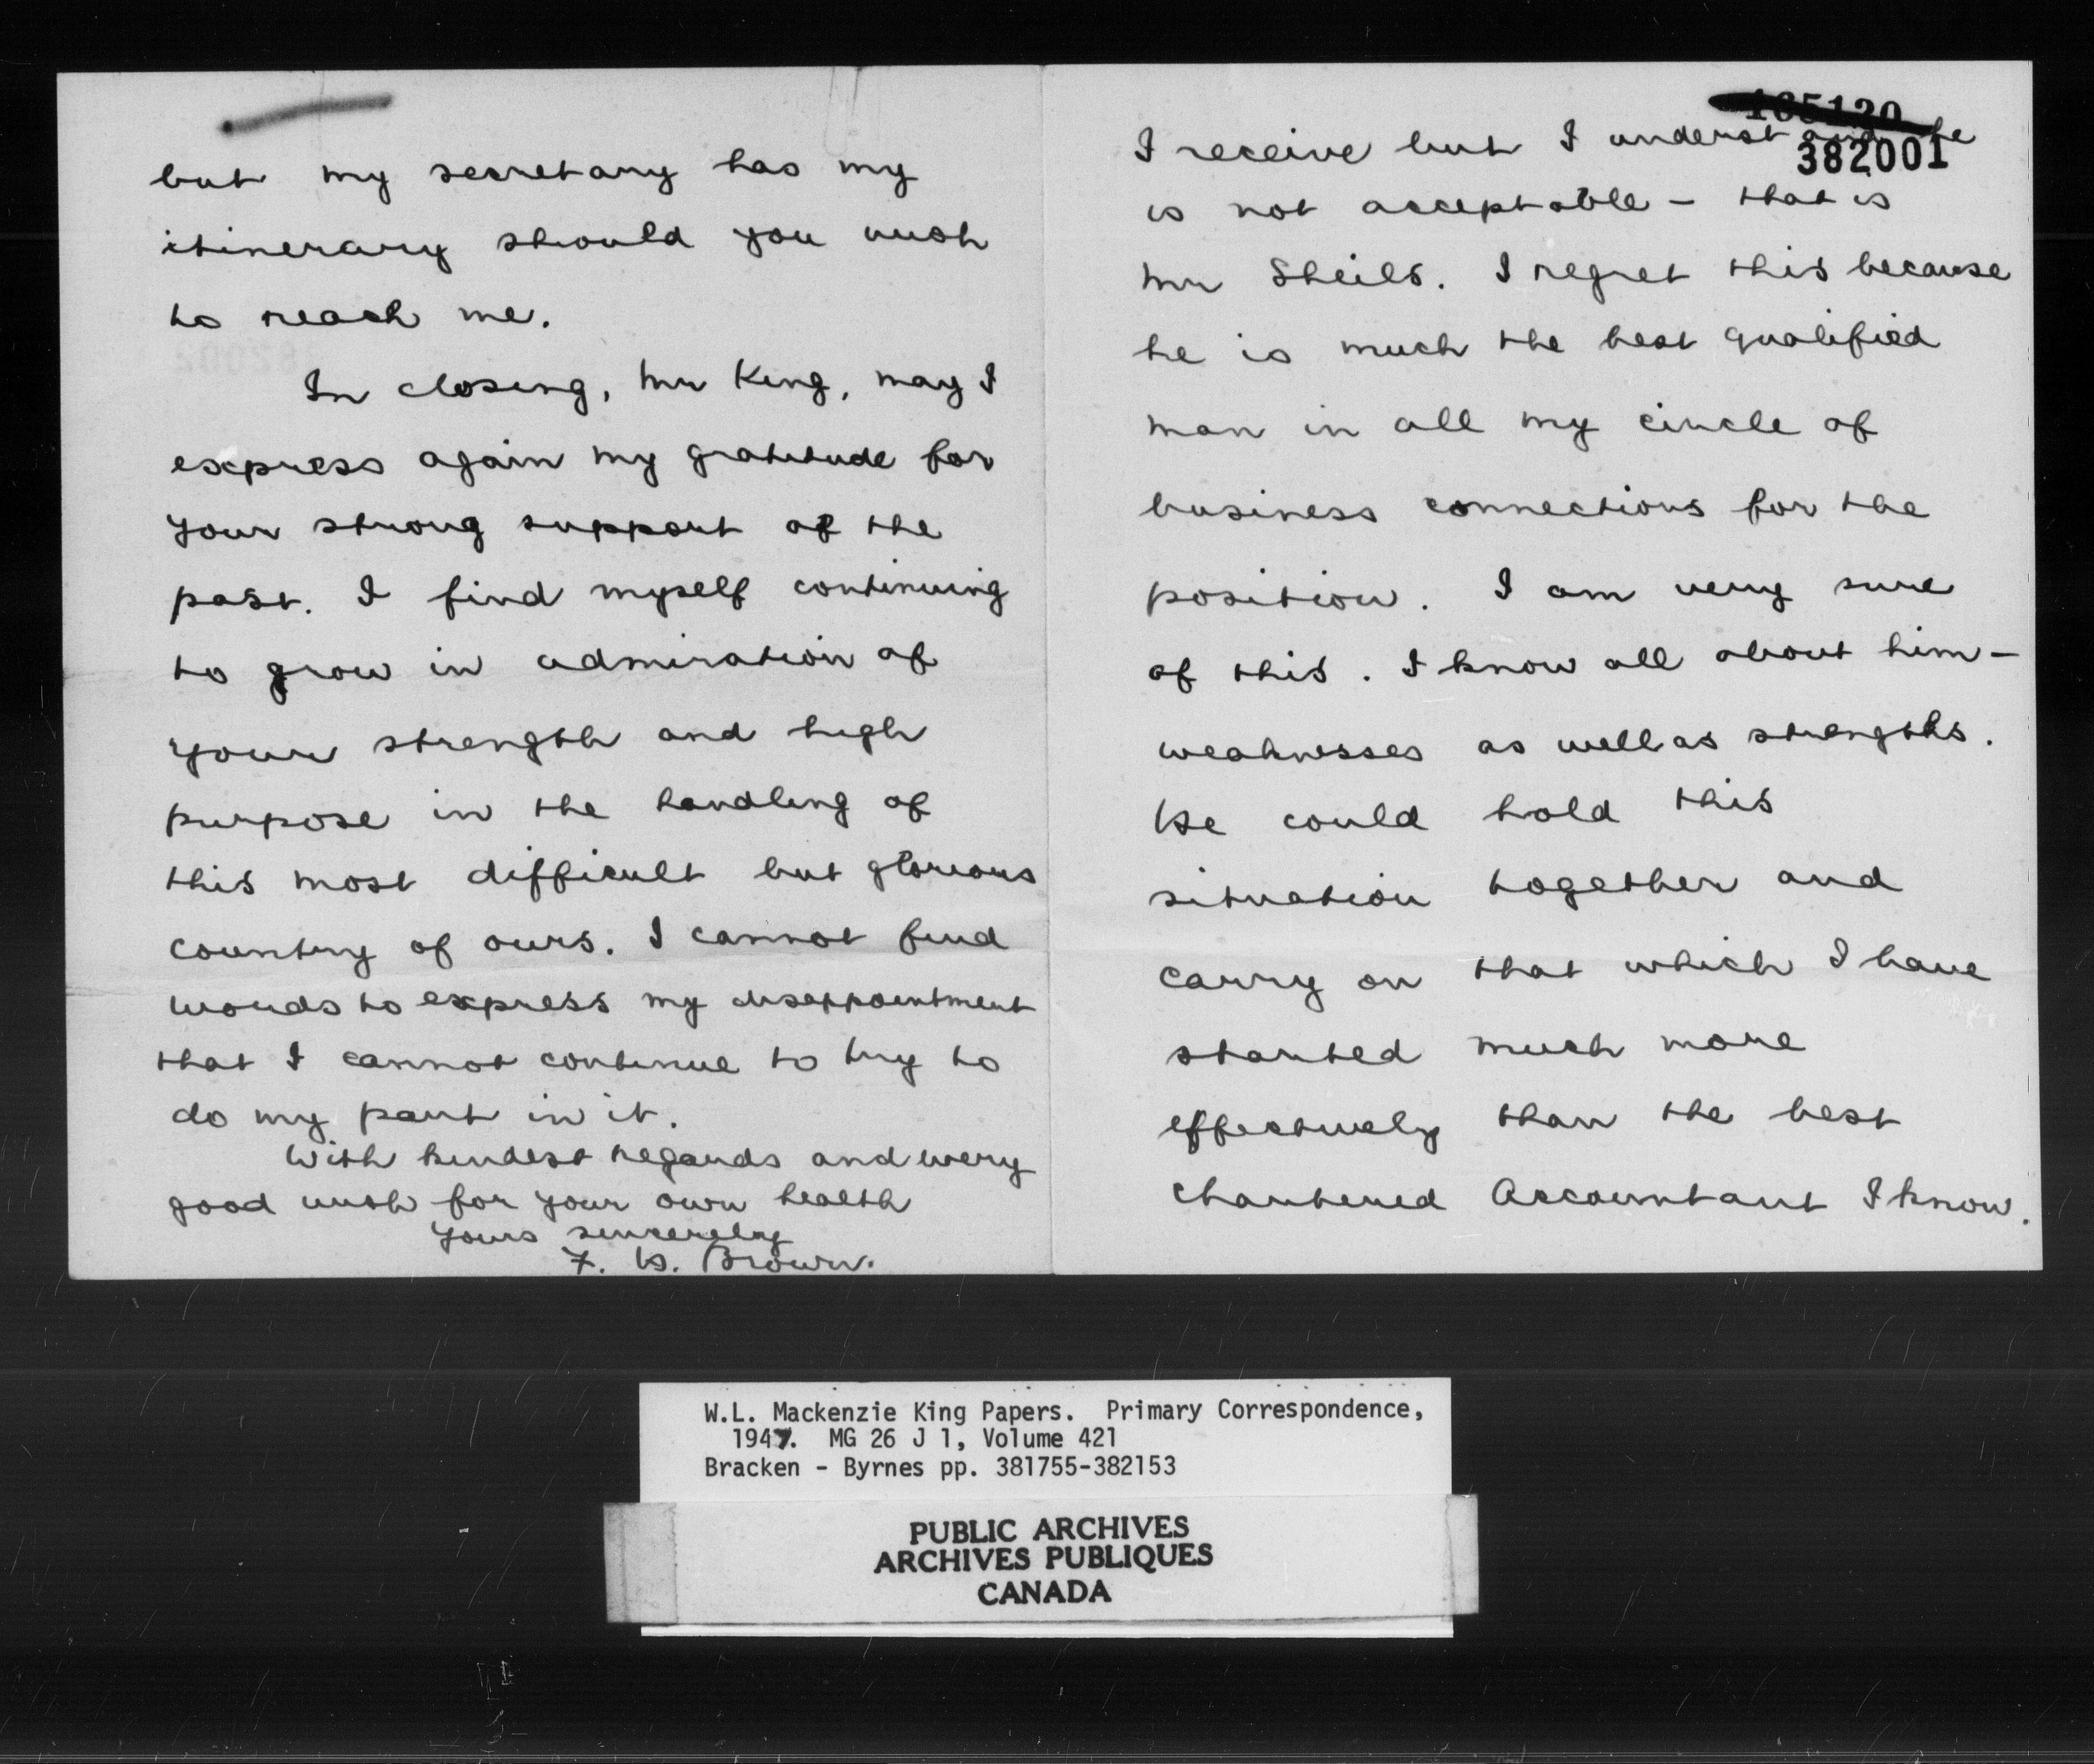 but my secretary has my
itinerary should you wish
to reach me.
In closing, Mr King, may I
express again my gratitude for
your strong support of the
past. I find myself continuing
to grow in admiration of
your strength and high
purpose in the handling of
this most difficult but glorious
country of ours. I cannot find
words to express my disappointment
that I cannot continue to try to
do my part in it.
With kindest regards and every
good wish for your own health
Yours sincerely
F. B. Brown.
165120
382001
I receive but I understand he
is not acceptable – that is
Mr Sheils. I regret this because
he is much the best qualified
man in all my circle of
business connections for the
position. I am very sure
of this. I know all about him –
weaknesses as well as strengths.
He could hold this
situation together and
carry on that which I have
started much more
effectively than the best
chartered Accountant I know.
W.L. Mackenzie King Papers. Primary Correspondence,
1947. MG 26 J 1, Volume 421
Bracken - Byrnes pp. 381755-382153
PUBLIC ARCHIVES
ARCHIVES PUBLIQUES
CANADA